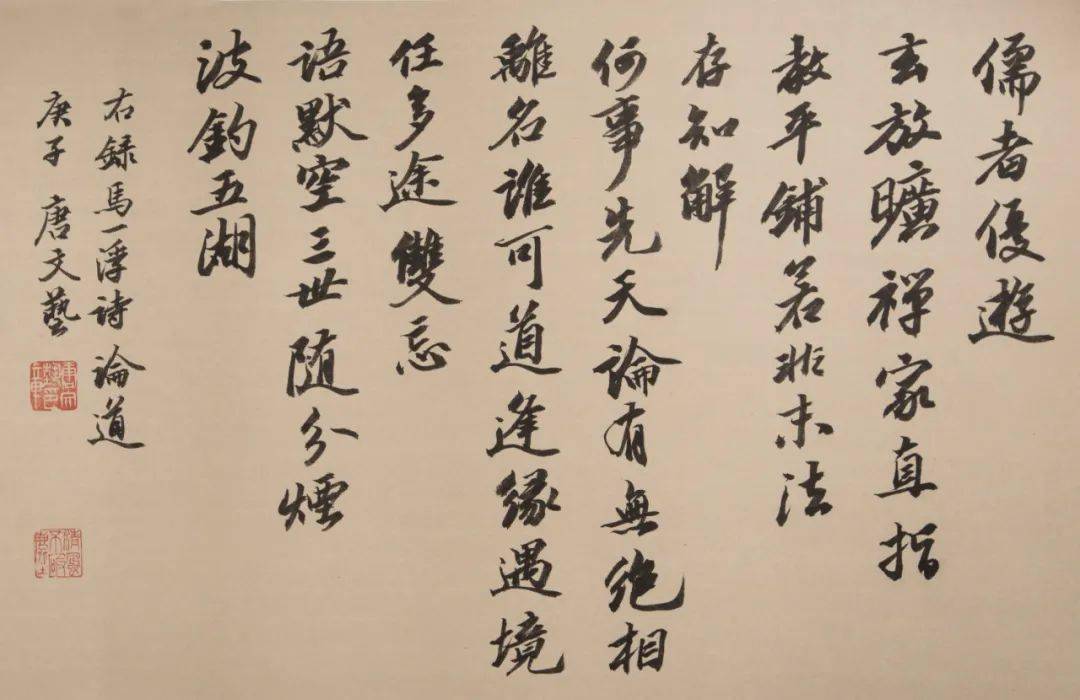 儒者優遊
玄放曠禅家直指
教平鋪若非末法
存知解
何事先天論有無絶相
離名誰可道逢緣遇境
任多途雙忘
語默空三世随分煙
波釣五湖
右録馬一浮詩 論道
庚子 唐文藝